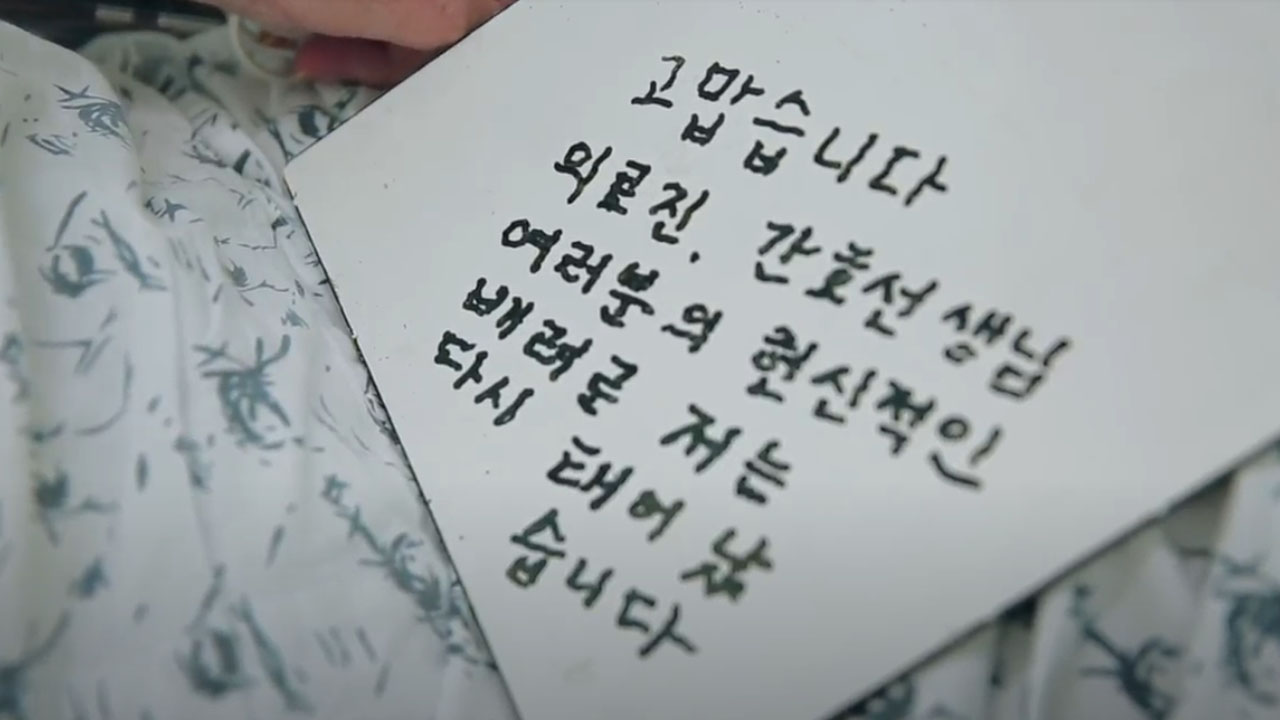 고맙습니다
의료진. 간호선생님
여러분의 헌신적인
배려로 저는
다시 태어났
습니다